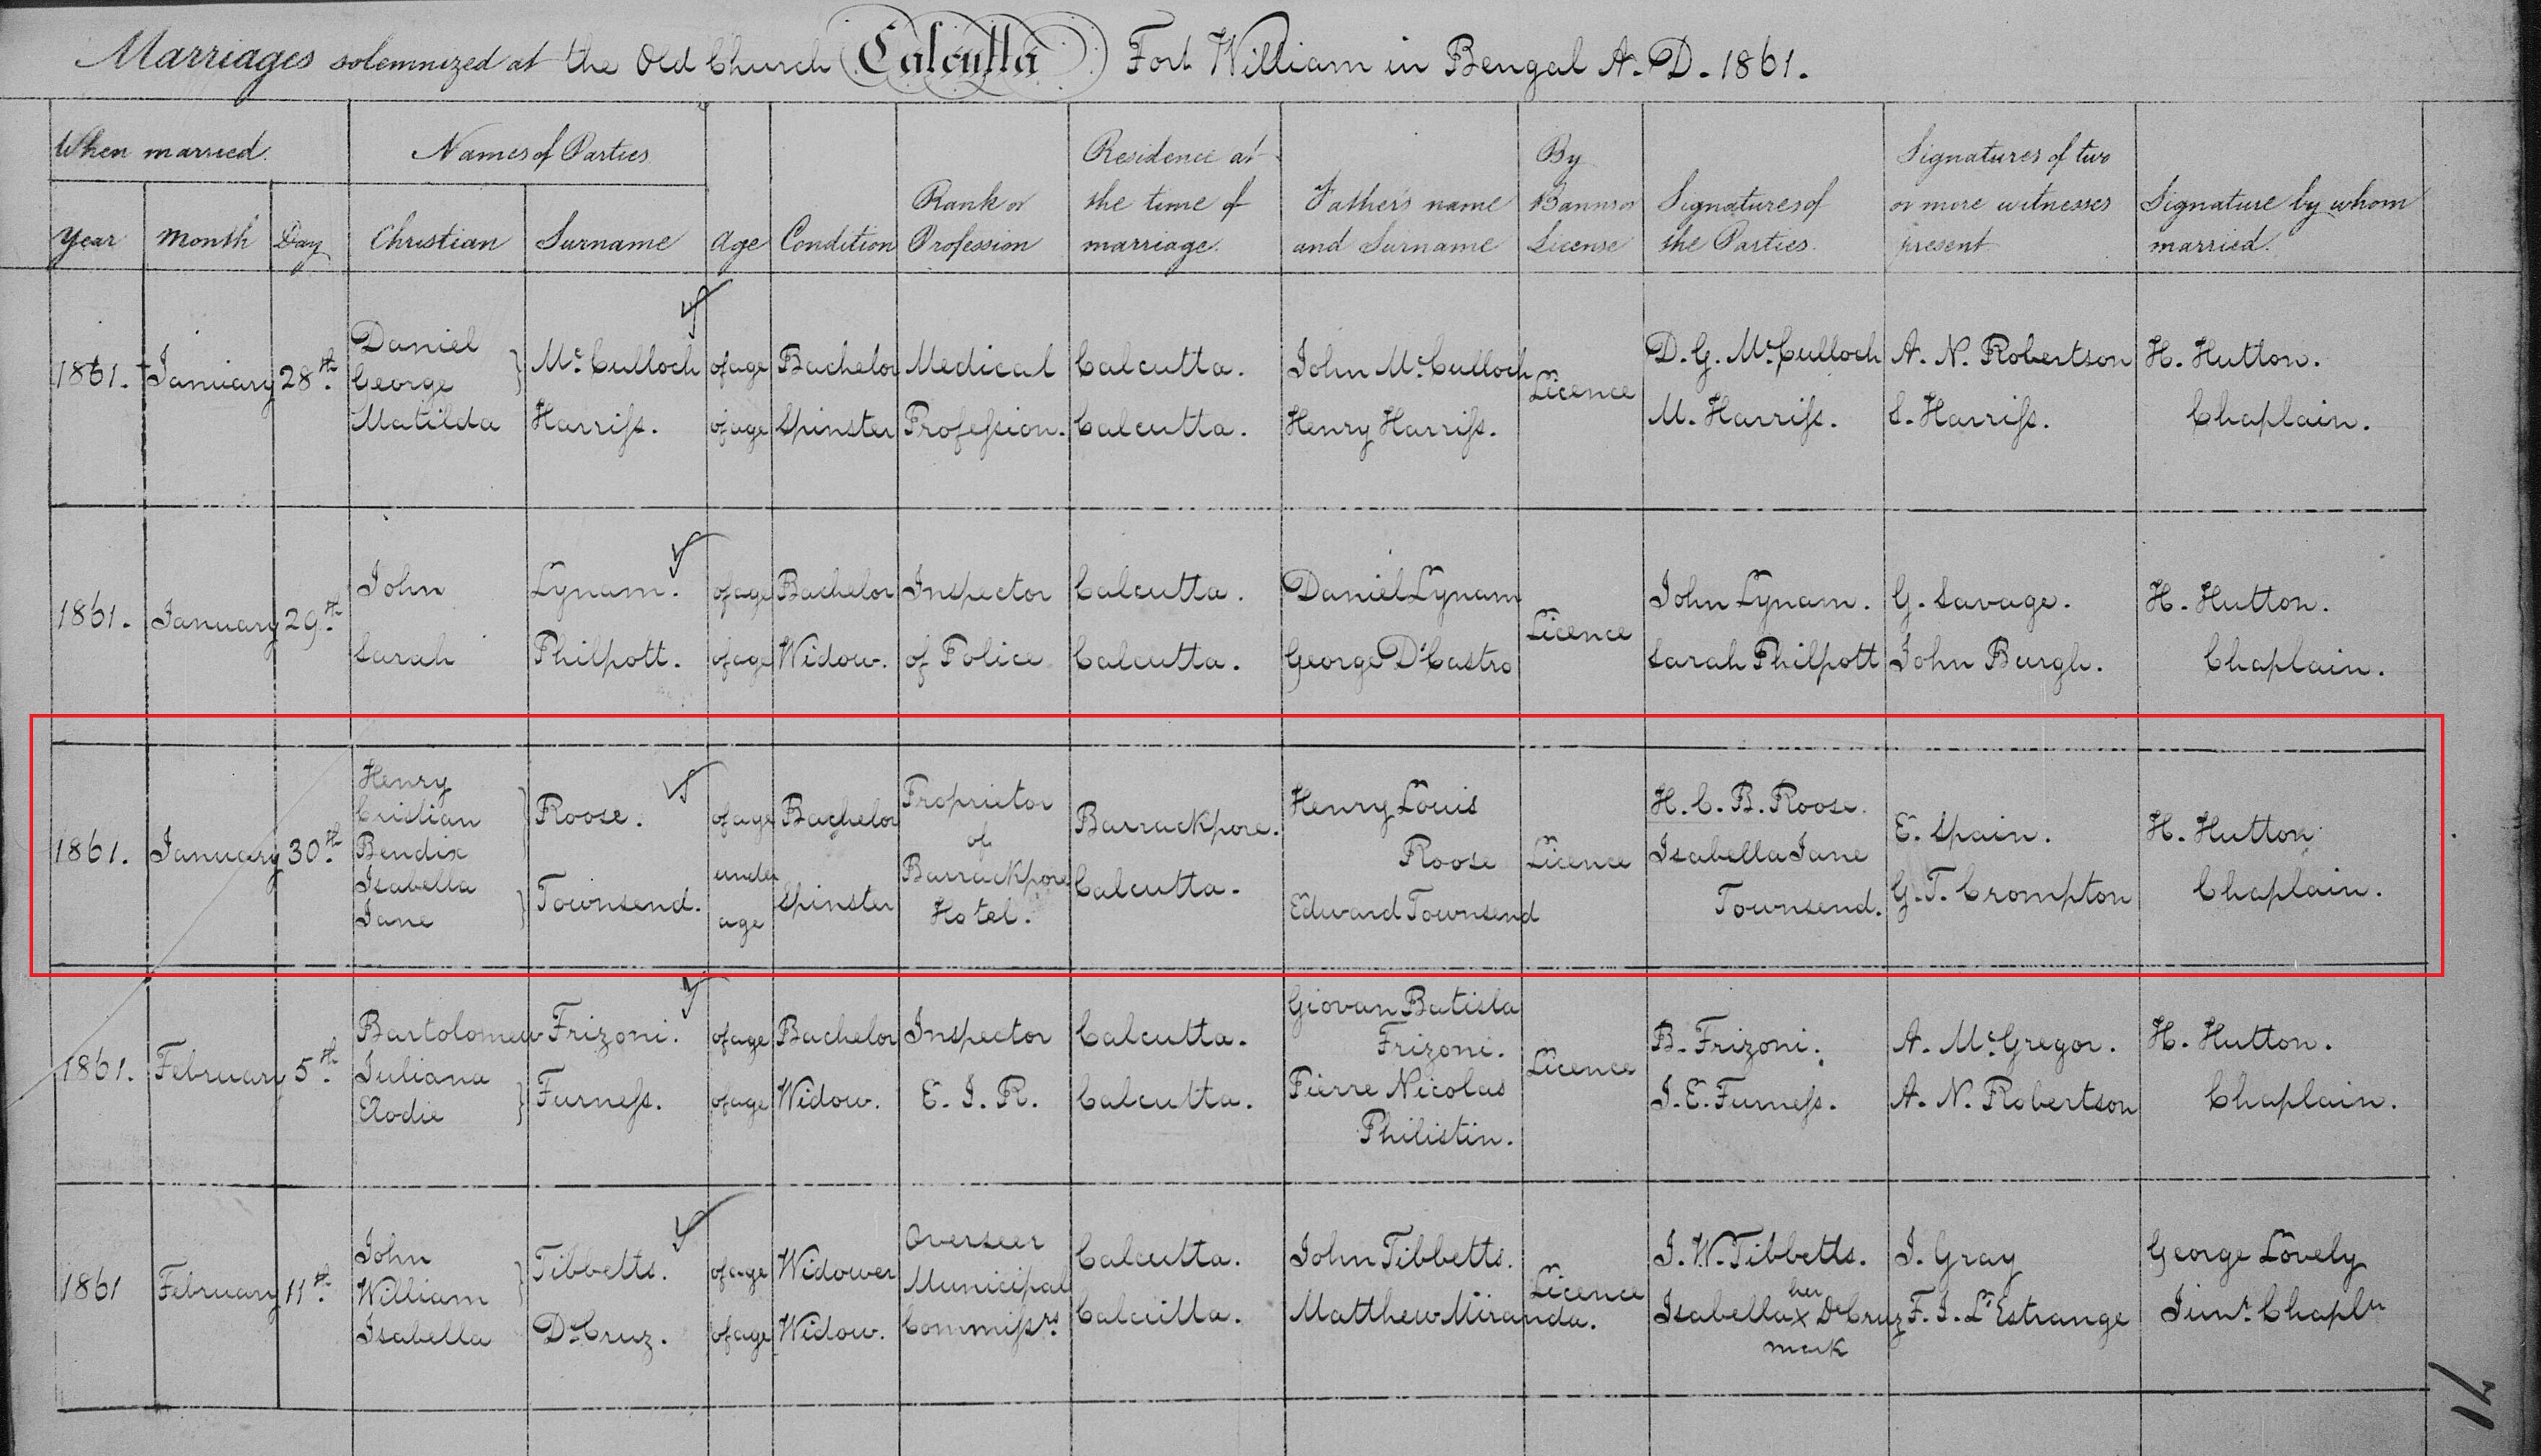 Marriages solemnized at the Old Church Calcutta Fort William in Bengal A.D. 1861.
When married. Names of Parties
Year Month Day Christian Surname Age Condition Rank or Profession Residence at the time of marriage. Father's name and Surname By Banns or License Signatures of the Parties. Signatures of two or more witnesses present Signature by whom married.
1861. January 28th. Daniel George } McCulloch of age Bachelor Medical Calcutta. John McCulloch Licence D. G. McCulloch A. N. Robertson H. Hutton.
Matilda Harriss. of age Spinster Profession. Calcutta. Henry Harriss. M. Harriss. S. Harriss. Chaplain.
1861. January 29th. John Lynam. of age Bachelor Inspector Calcutta. Daniel Lynam Licence John Lynam. G. Savage. H. Hutton.
Sarah Philpott. of age Widow. of Police Calcutta. George D'Castro Sarah Philpott John Burgh. Chaplain.
1861. January 30th. Henry Cristian Bendix } Roose. of age Bachelor Proprietor of Barrackpore Hotel. Barrackpore. Henry Louis Roose Licence H. C. B. Roose. E. Spain. H. Hutton
Isabella Jane } Townsend. under age Spinster Calcutta. Edward Townsend Isabella Jane Townsend. G. T. Crompton Chaplain.
1861. February 5th. Bartolomew Frizoni. of age Bachelor Inspector Calcutta. Giovan Batista Frizoni. Licence B. Frizoni. A. McGregor. H. Hutton.
Juliana Elodie } Furness. of age Widow. E. I. R. Calcutta. Pierre Nicolas Philistin. J. E. Furness. A. N. Robertson Chaplain.
1861 February 11th. John William } Tibbetts. of age Widower Overseer Municipal Commissrs Calcutta. John Tibbetts. Licence J. W. Tibbetts. J. Gray George Lovely
Isabella DeCruz. of age Widow. Calcutta. Matthew Miranda. Isabella her x mark DeCruz F. J. L'Estrange Junr. Chapln
71